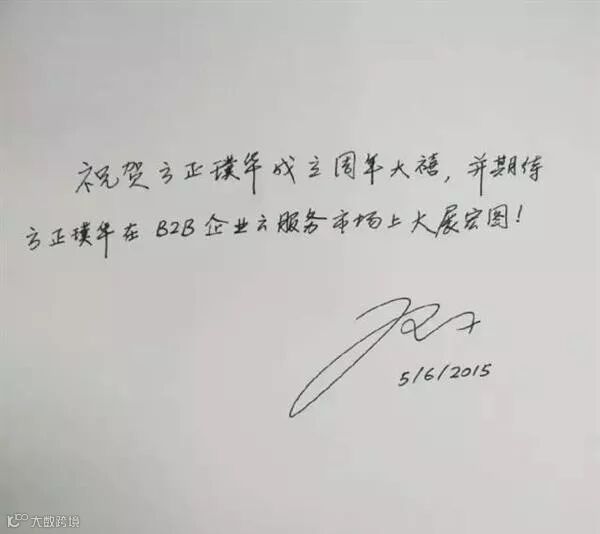 祝贺方正璞华成立周年大禧，并期待
方正璞华在B2B企业云服务市场上大展宏图！
5/6/2015
大数跨境